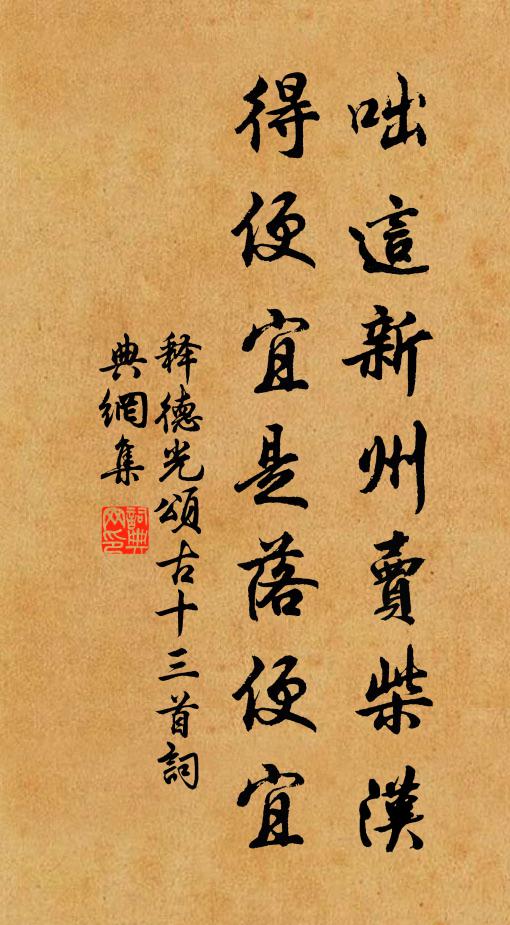 咄這新州賣柴漢
得便宜是落便宜
释德光頌古十三首詞
典網集
詞典